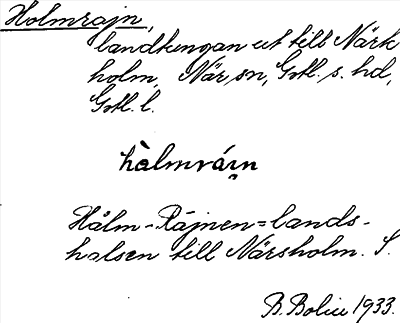 Holmrajn,
landtungan ut till Närk
holm, När sn, Gotl. s. hd,
Gotl. l.
hàlmrái̯n
Hålm-Räjnen = lands-
halsen till Närsholm. S.
B. Bolin 1933.